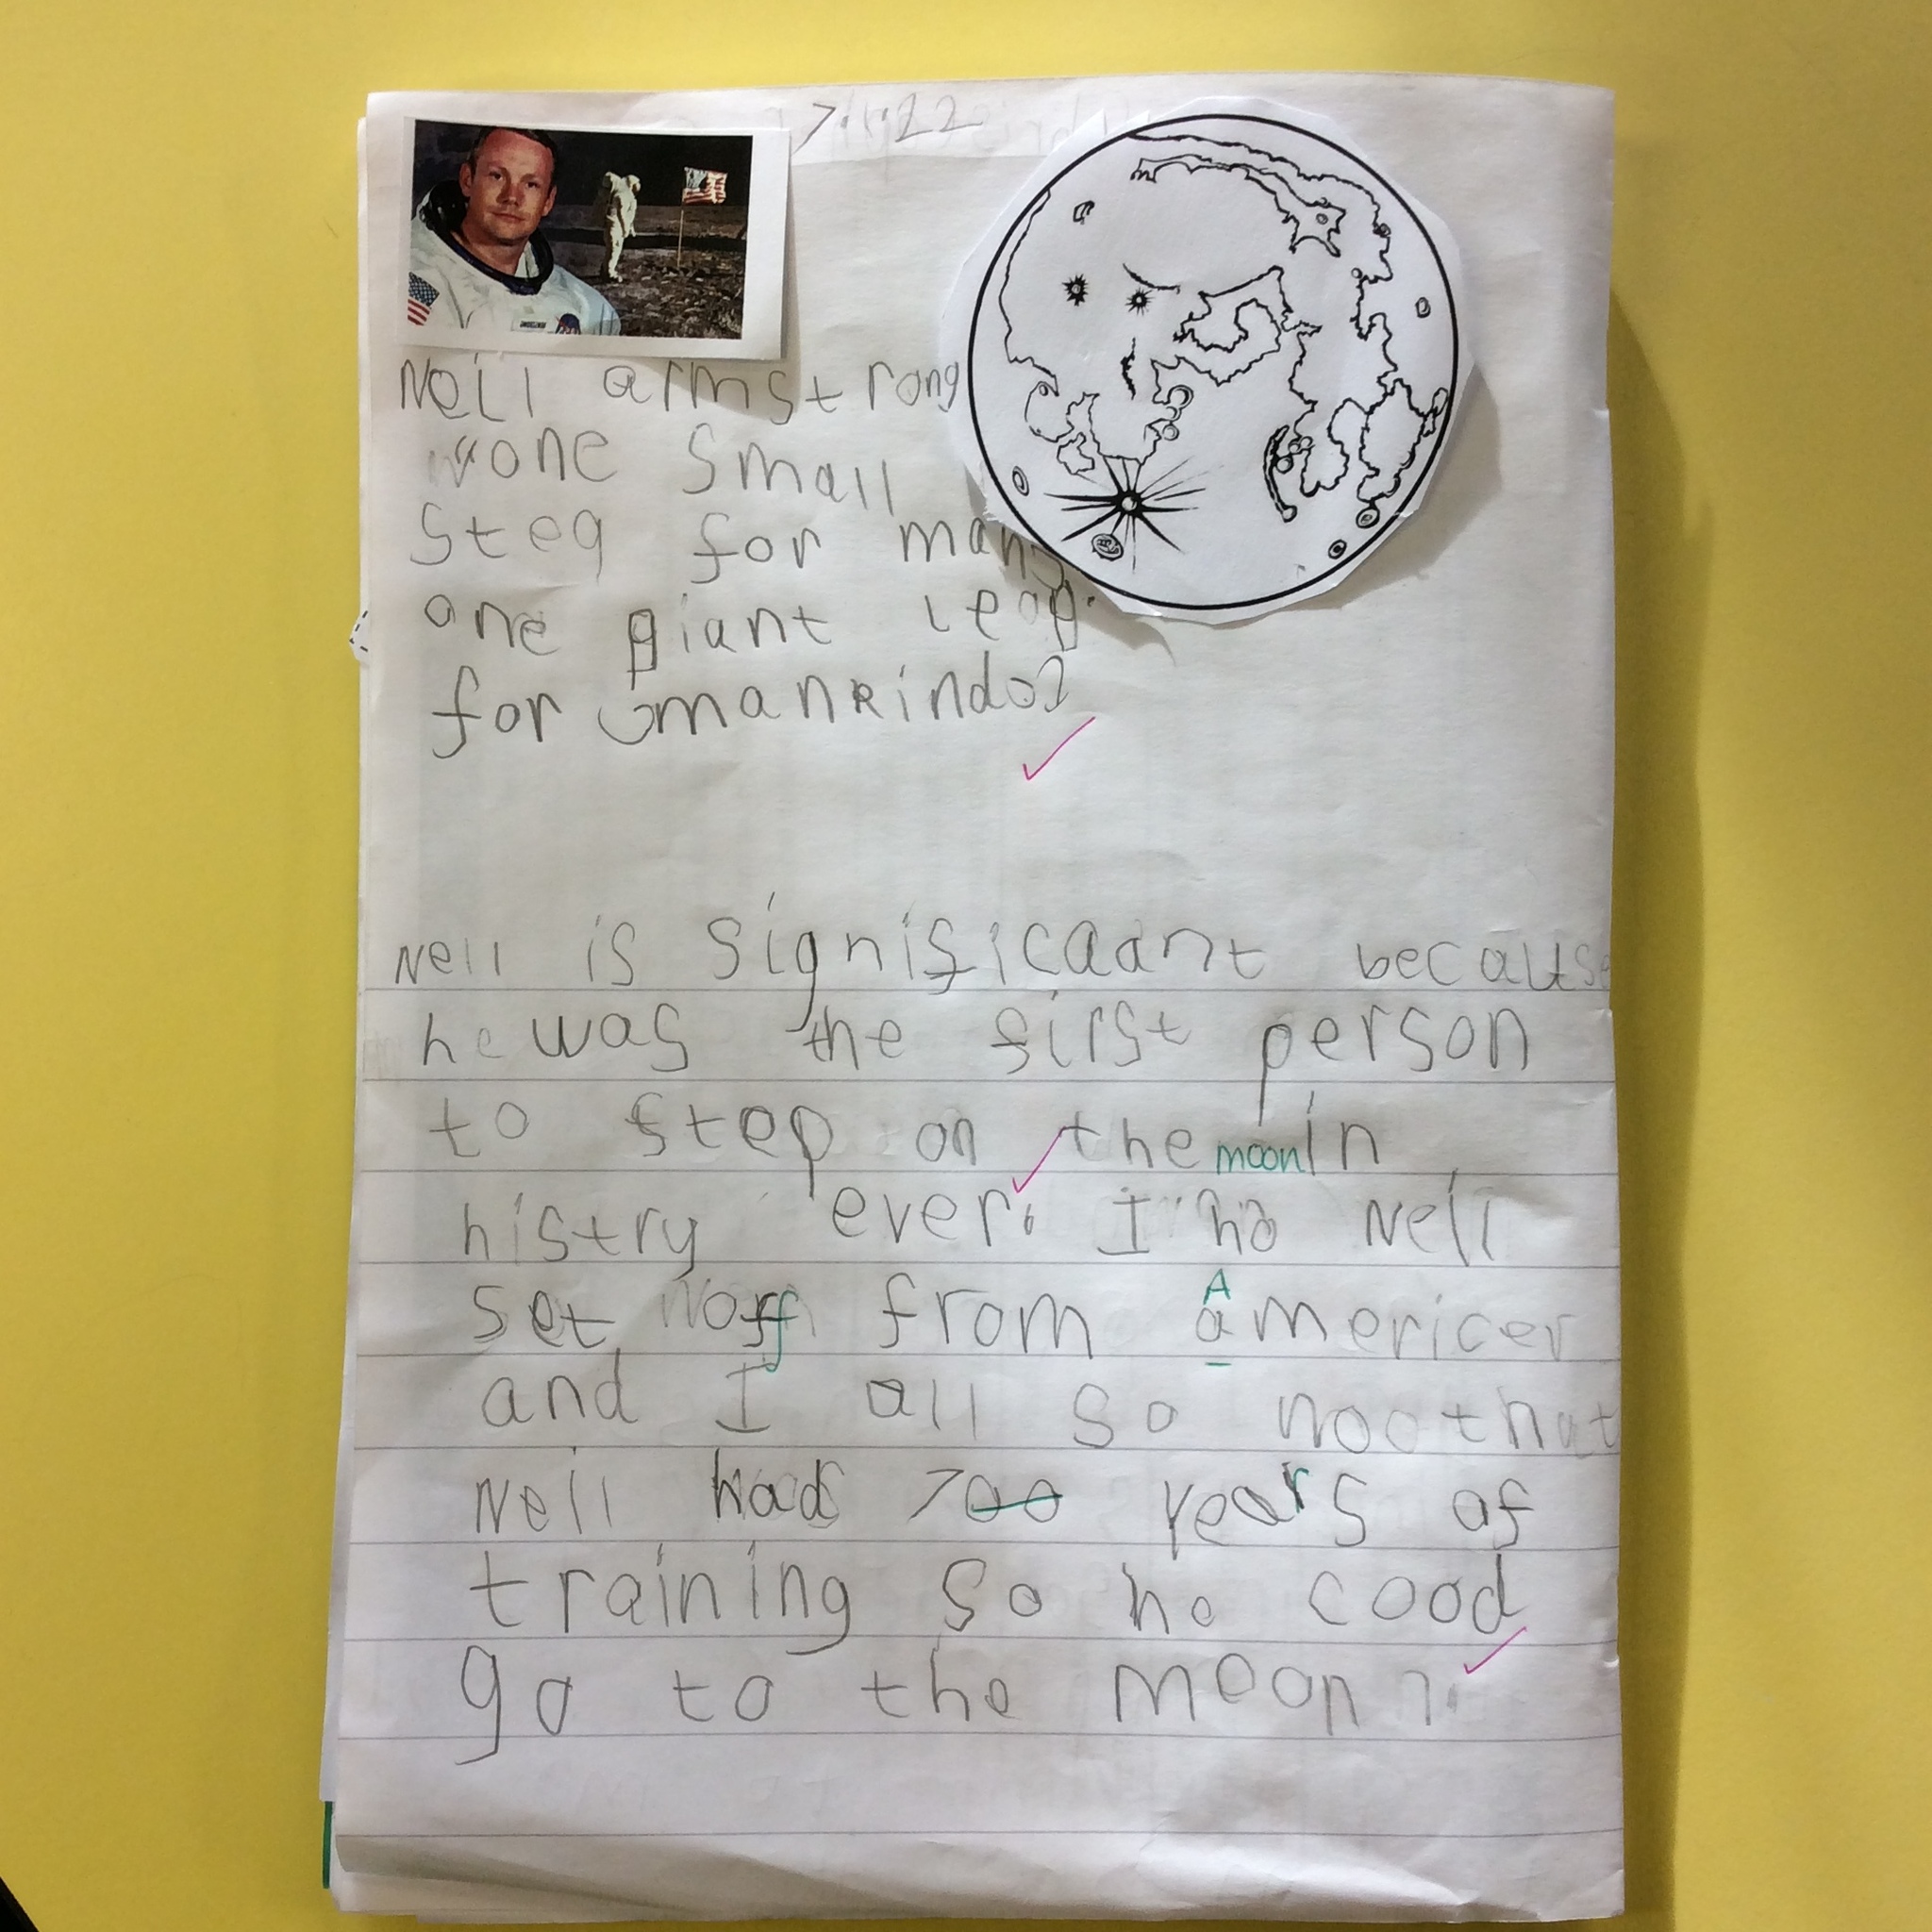 7.1.22
Neil armstrong
"one small
steq for man,
one giant leap
for mankind"
Neil is significaant because
he was the first person
to step on the moon in
histry ever. I no Neil
A
set off from americer
and I all so noo that
Neil had 700 years of
training so he cood
go to the moon.